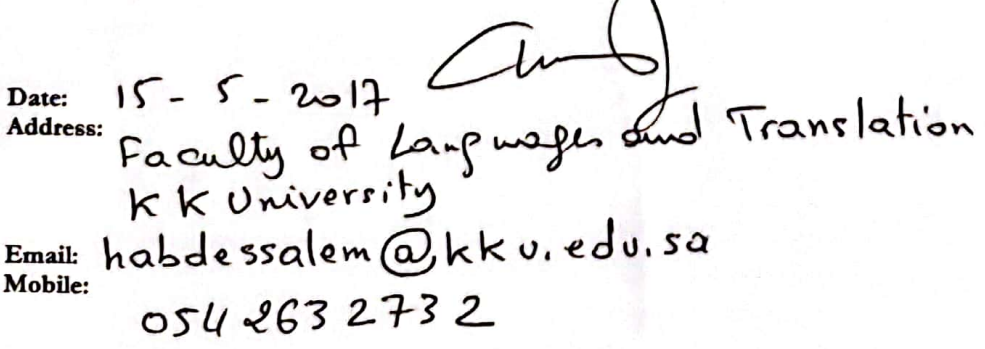 Date: 15 - 5 - 2017
Address: Faculty of Languages and Translation
K K University
Email: habdessalem@kku.edu.sa
Mobile:
054 263 2732